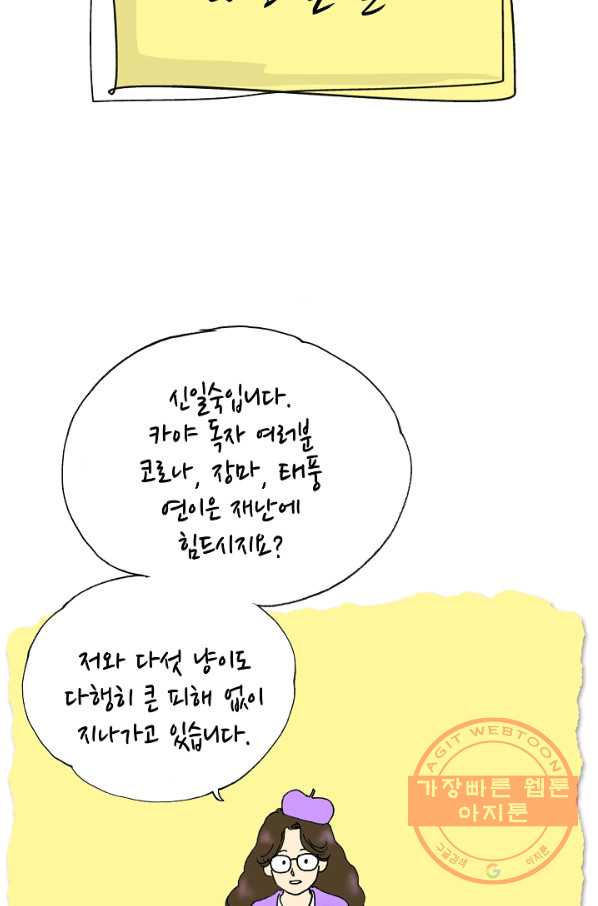 신일숙입니다.
카야 독자 여러분
코로나, 장마, 태풍
연이은 재난에
힘드시지요?
저와 다섯 냥이도
다행히 큰 피해 없이
지나가고 있습니다.
AGIT WEBTOON
가장빠른 웹툰
아지툰
구글검색
아지툰
G